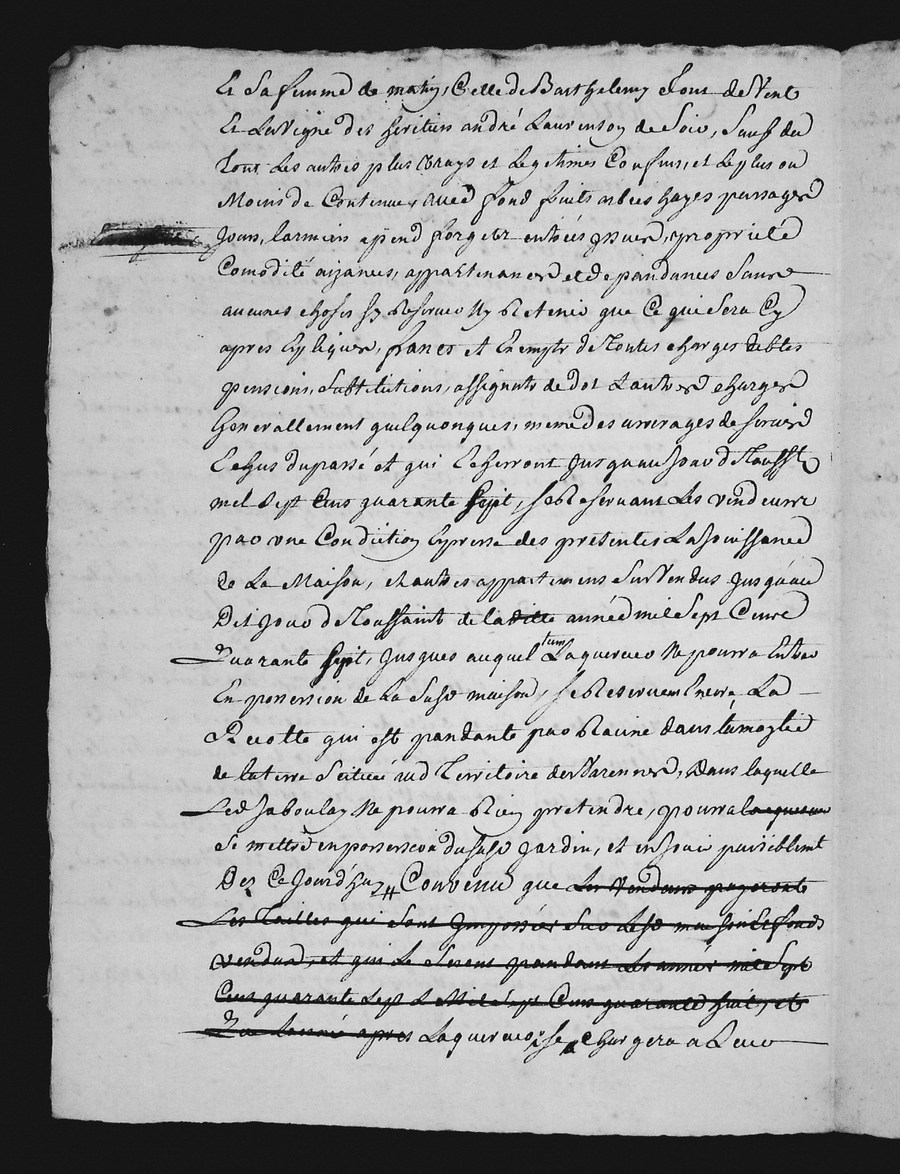 Et sa femme de matin, Celle de Barthelemy Jour de Vent
Et La Vigne des heritiers andré Laurenson de Soir, Sauf du
Tous Les autres plus Vrays et Legitimes Confins, et Le plus ou
Moins de Contenue, avec fond fruits arbres hayes passages
Jours, larmiers apend forgetz entrées Issues, propriete
Comodité aizances, appartenances et depandances Sans
aucunes choses sy Reserver Ny Retenir que Ce qui Sera Cy
apres Expliquer, francs et Exempts de Toutes charges debtes
pensions, Substitutions, assignats de dot & autres charges
Generallement quelquonques, meme des arrerages de servis
Echus du passé et qui Echerront Jusqu'au Jour de Toussts
mil Sept Cens quarante Sept, se Reservant Les vendeurs
par une Condiction Expresse des presentes La Jouissance
de La Maison, et autres appartemens Sus Vendus Jusqu'au
Dit Jour de Toussaint de la ditte année mil Sept Cens
Quarante Sept, Jusques auquel tem Laquereur Ne pourra Entrer
En possession de La Susd maison, se Reservent Encore La
Recolte qui est pandante par Racine dans la moytié
de la terre Scituée aud Territoire des Varennes, Dans laquelle
Led Saboulay Ne pourra Rien pretendre, pourra laquereur
Se mettre en possession du susd Jardin, et en Jouir paisiblemt
Dez Ce Jourd'huy # Convenu que Les Vendeurs payeront
Les Tailles qui Sont Imposées Sur Lesd maison Et fonds
vendus, et qui Le Seront pandant Les années mil Sept
Cens quarante Sept & Mil Sept Cens quarante huit, et
apres Laquereur se chargera a Leur